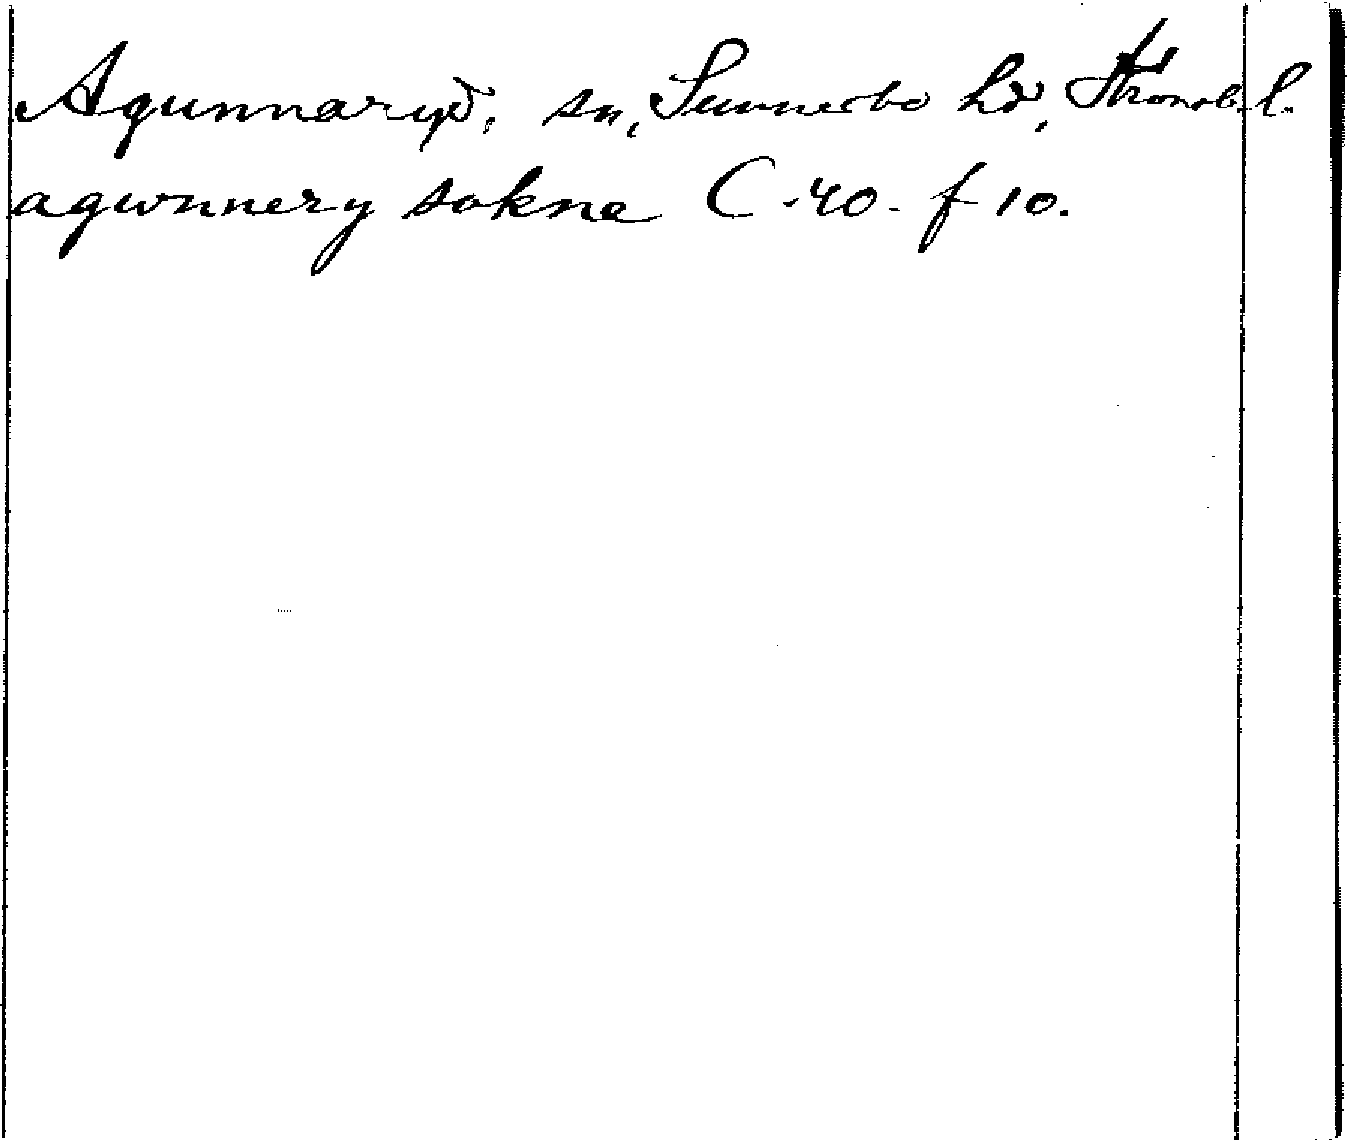 Agunnaryd, sn, Sunnerbo hd, Kronob. l.
agwnnery sokne C 40. f 10.